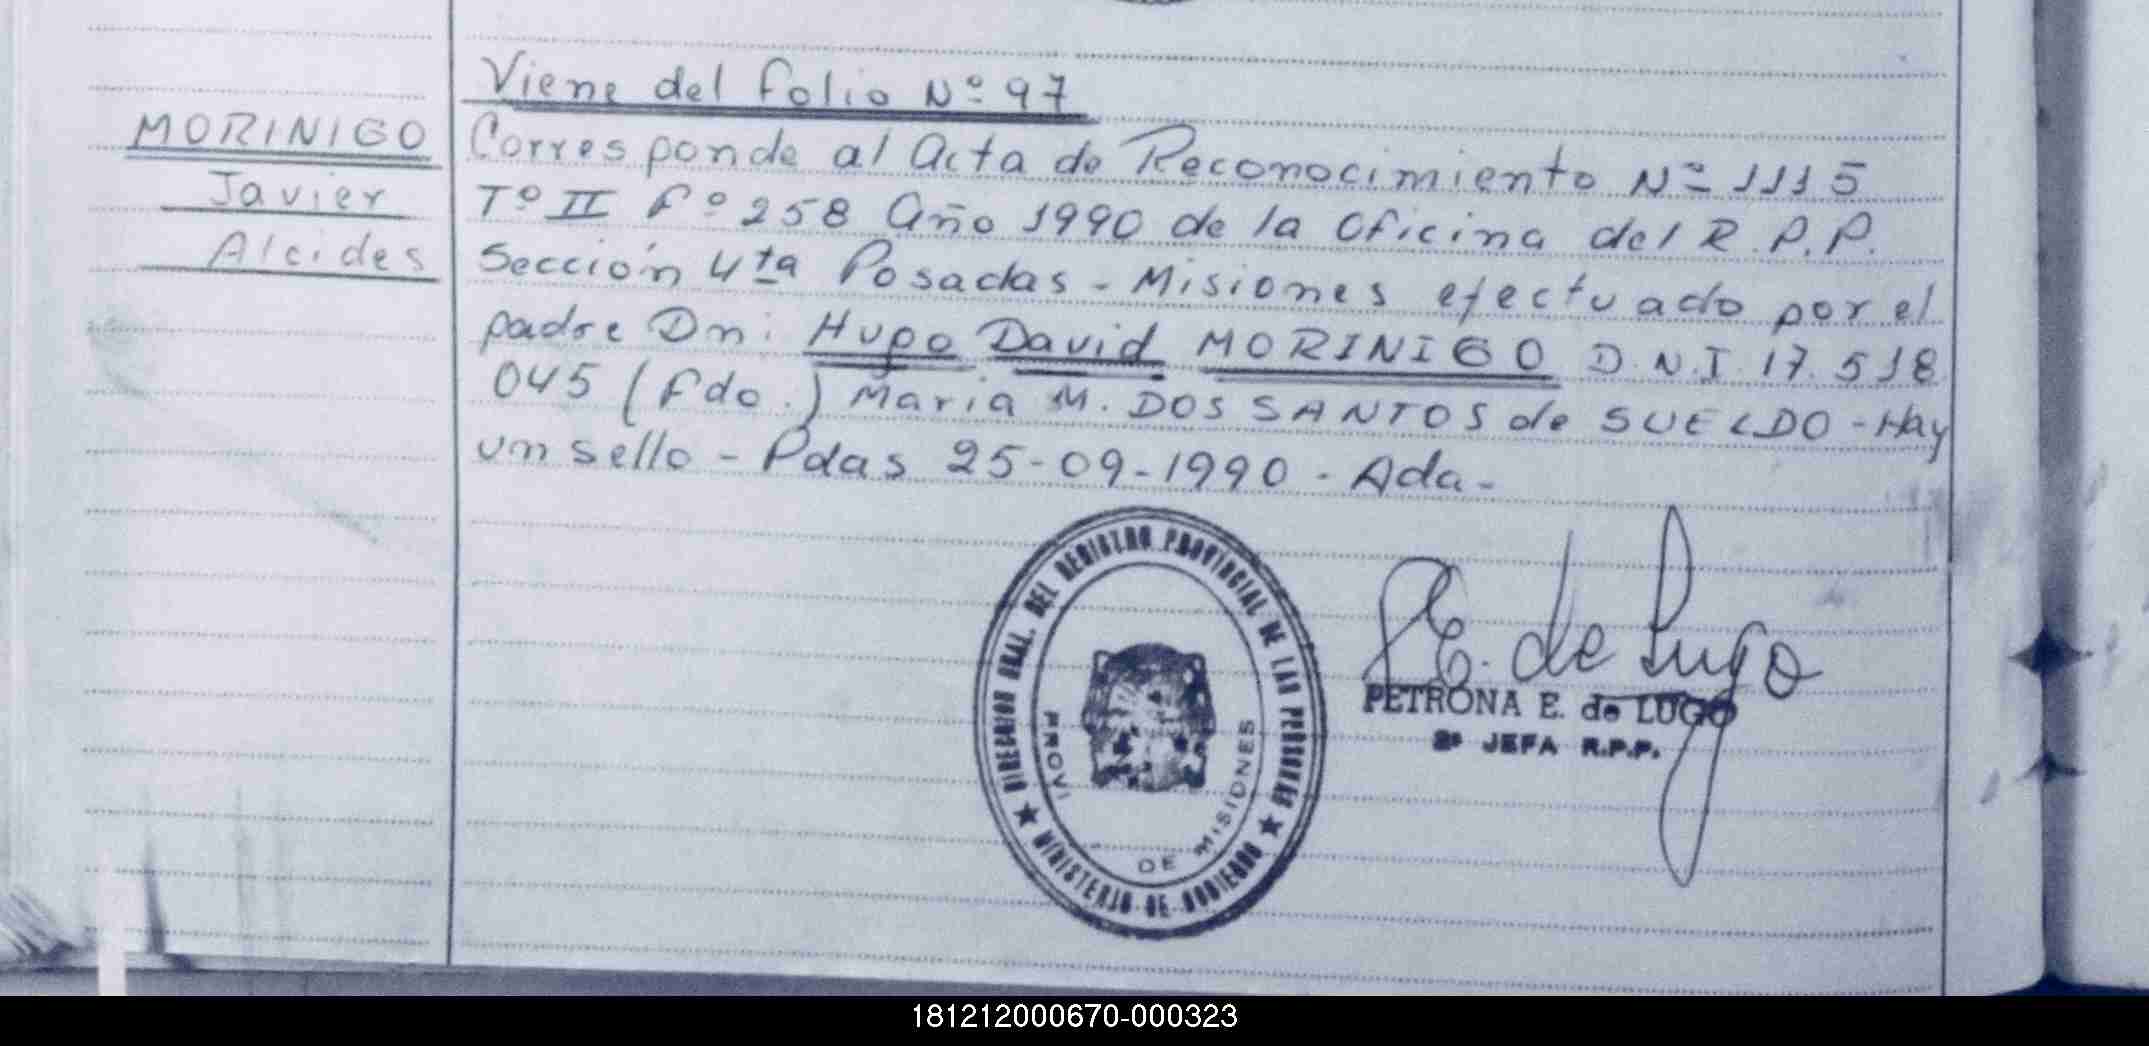 Viene del folio Nº 97
MORINIGO
Javier
Alcides
Corresponde al Acta de Reconocimiento Nº 1115
Tº II Fº 258 Año 1990 de la Oficina del R.P.P.
Sección 4ta Posadas - Misiones efectuado por el
padre Dn: Hugo David MORINIGO D.N.I. 17.518
045 (Fdo.) Maria M. DOS SANTOS de SUELDO - Hay
un sello - Pdas 25-09-1990 - Ada-
DIRECCION GRAL. DEL REGISTRO PROVINCIAL DE LAS PERSONAS
★ MINISTERIO DE GOBIERNO ★
PROVI
DE MISIONES
P E. de Lugo
PETRONA E. de LUGO
2ª JEFA R.P.P.
181212000670-000323